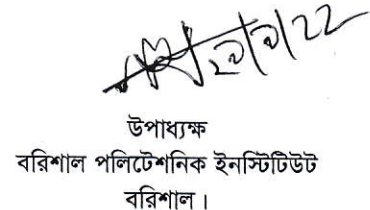 উপাধ্যক্ষ
বরিশাল পলিটেশনিক ইনস্টিটিউট
বরিশাল।